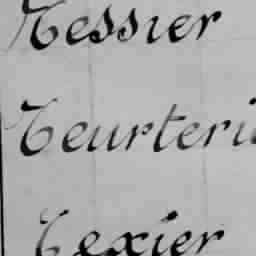 Tessier
Teurteri
Texier